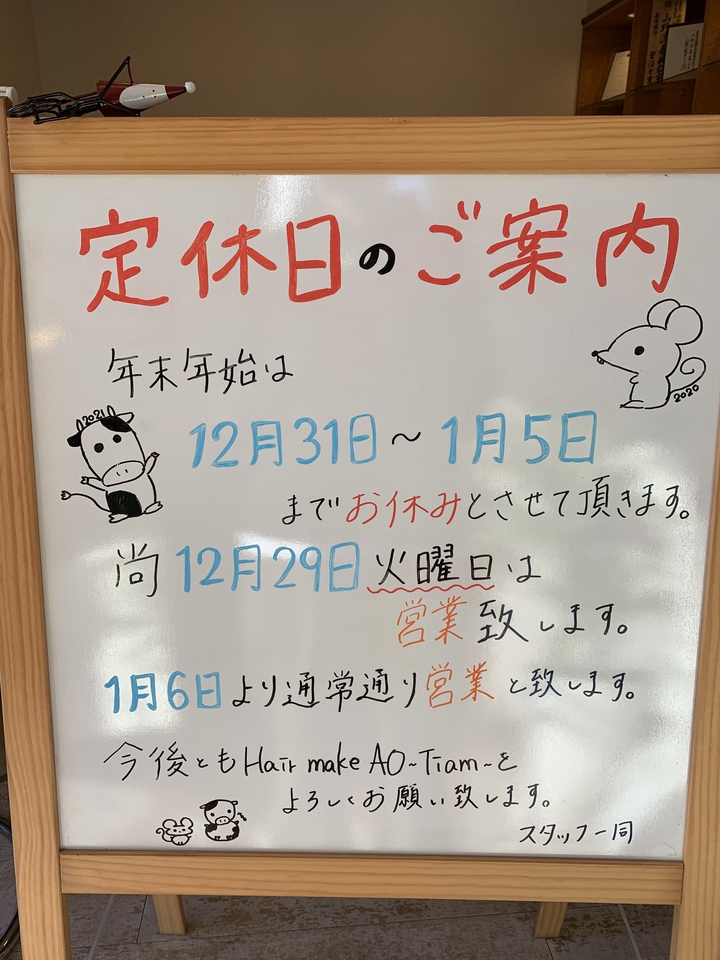 定休日のご案内
年末年始は
2020
2021
12月31日～1月5日
までお休みとさせて頂きます。
尚12月29日火曜日は
営業致します。
1月6日より通常通り営業と致します。
今後ともHair make AO~Tiam~を
よろしくお願い致します。
スタッフ一同